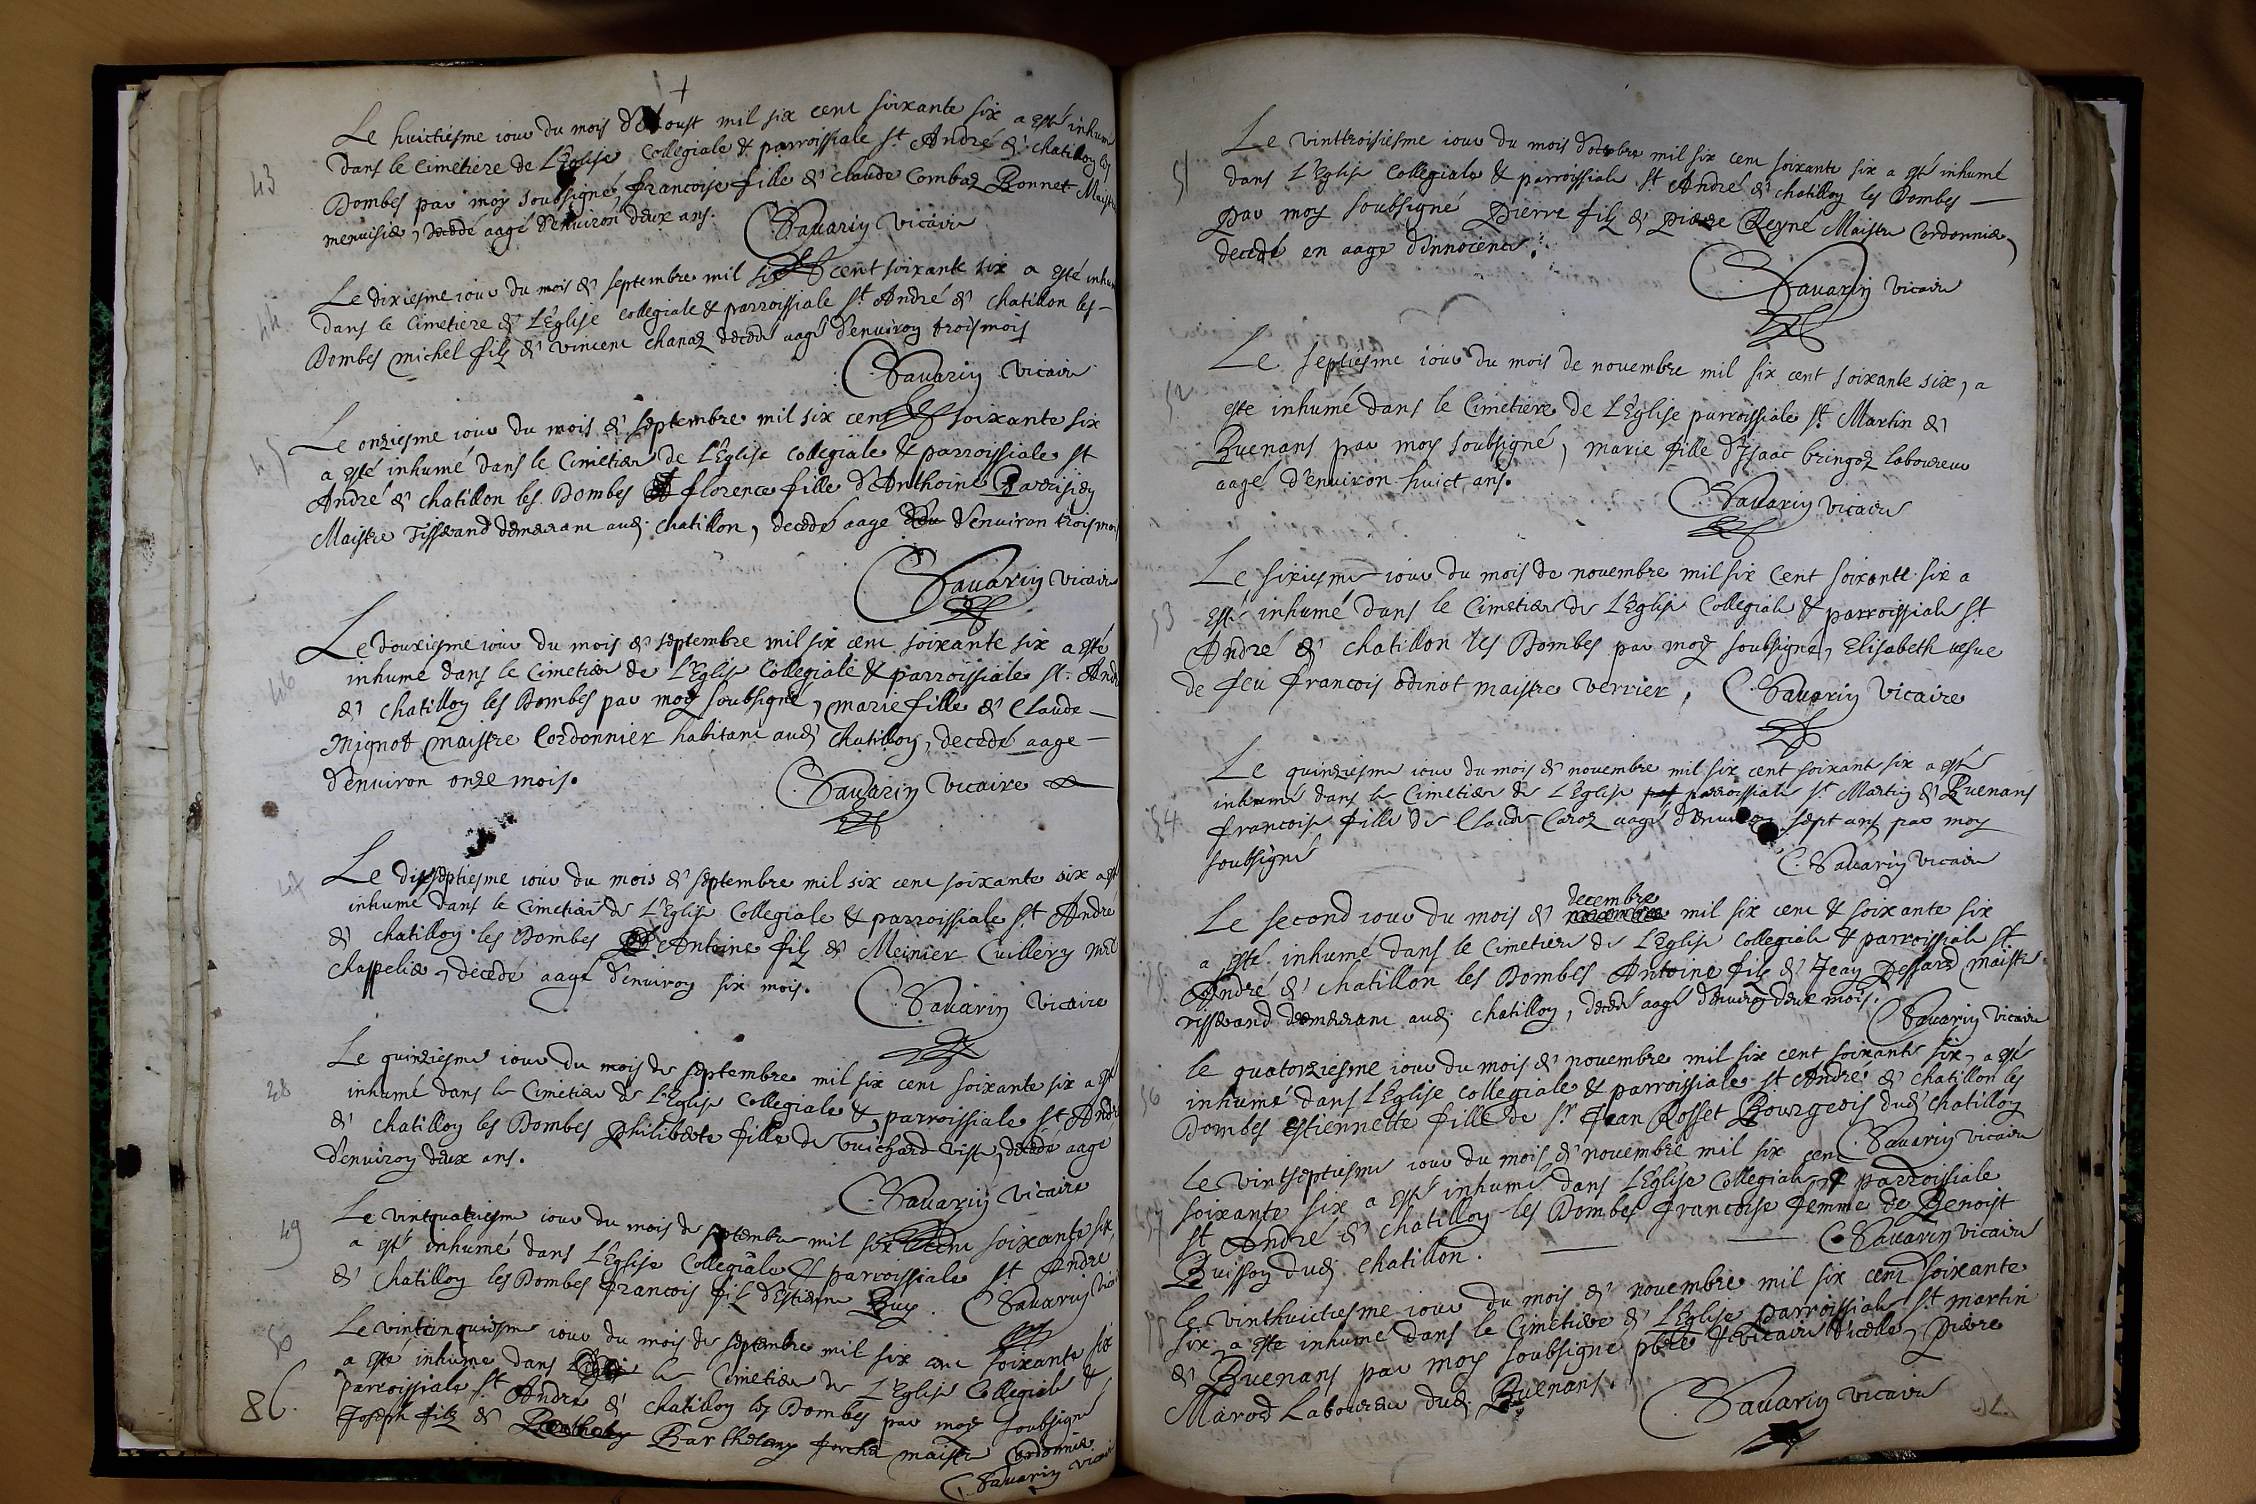 43
Le huictiesme iour du mois d'Aoust mil six cent soixante six a esté inhumé
dans le Cimetiere de L'Eglise Collegiale & parroissiale St André de chatillon les
Dombes par moy soubsigné, francoise fille de claude Combaz Bonnet Maistre
menuisier, decedé aagé d'environ deux ans. C. Sauarin vicaire
44
Le dixiesme iour du mois de septembre mil six cent soixante six a esté inhumé
dans le Cimetiere de L'Eglise collegiale & parroissiale St André de chatillon les
Dombes michel filz de vincent chanaz decedé aagé d'enuiron trois mois
C. Sauarin vicaire
45
Le onziesme iour du mois de septembre mil six cent soixante six
a esté inhumé dans le Cimetiere de L'Eglise collegiale & parroissiale St
André de chatillon les Dombes florence fille d'Anthoine Parrisien
Maistre Tisserand demeurant aud. chatillon, decedé aagé d'enuiron trois mois
C. Sauarin vicaire
46
Le douxiesme iour du mois de septembre mil six cent soixante six a esté
inhumé dans le Cimetiere de L'Eglise Collegiale & parroissiale St. André
de chatillon les Dombes par moy soubsigné, marie fille de Claude
Mignot maistre Cordonnier habitant aud. chatillon, decedé aage
d'environ onze mois. C. Sauarin vicaire
47
Le dixseptiesme iour du mois de septembre mil six cent soixante six a esté
inhumé dans le Cimetiere de L'Eglise Collegiale & parroissiale St André
de chatillon les Dombes Antoine filz de Meinier Cuillery
Chappelier, decedé aagé d'enuiron six mois. C. Sauarin vicaire
48
Le quinziesme iour du mois de septembre mil six cent soixante six a esté
inhumé dans le Cimetiere de L'Eglise Collegiale & parroissiale St André
de chatillon les Dombes philiberte fille de vuichard vist, decedé aage
d'enuiron deux ans.
C. Sauarin vicaire
49
Le vintquatriesme iour du mois de septembre mil six cent soixante six,
a esté inhumé dans L'Eglise Collegiale & parroissiale St André
de chatillon les Dombes francois filz d'Estienne Buy. C. Sauarin vicaire
50
Le vintcinquiesme iour du mois de septembre mil six cent soixante six
a esté inhumé dans le Cimetiere de L'Eglise Collegiale &
parroissiale St André de chatillon les Dombes par moy soubsigné
Joseph filz de Barthelemy maistre Cordonnier
C. Sauarin vicaire
86.
51
Le vinttroisiesme iour du mois d'octobre mil six cent soixante six a esté inhumé
dans L'Eglise Collegiale & parroissiale St André de chatillon les Dombes
par moy soubsigné Pierre filz de pierre Reyné Maistre Cordonnier,
decedé en aage d'innocence.
C. Sauarin vicaire
52
Le septiesme iour du mois de novembre mil six cent soixante six, a
esté inhumé dans le Cimetiere de L'Eglise parroissiale St Martin de
Buenans par moy soubsigné, marie fille d'Isaac bringoz laboureur
aagé d'environ huict ans.
C. Sauarin vicaire
53
Le sixiesme iour du mois de novembre mil six Cent soixante six a
esté inhumé dans le Cimetiere de L'Eglise Collegiale & parroissiale St
André de chatillon les Dombes par moy soubsigné, Elisabeth vesue
de feu francois odinot maistre verrier. C. Sauarin vicaire
54
Le quinziesme iour du mois de novembre mil six cent soixante six a esté
inhumé dans le Cimetiere de L'Eglise parroissiale St Martin de Buenans
francoise fille de Claude Caroz aagé d'enuiron sept ans par moy
soubsigné
C. Sauarin vicaire
55
decembre
Le second iour du mois de novembre mil six cent & soixante six
a esté inhumé dans le Cimetiere de L'Eglise Collegiale & parroissiale St
André de chatillon les Dombes Antoine filz de Jean Dessard maistre
Tisserand demeurant aud. chatillon, decedé aagé d'enuiron deux mois.
C. Sauarin vicaire
56
Le quatorziesme iour du mois de novembre mil six cent soixante six, a esté
inhumé dans L'Eglise collegiale & parroissiale St André de chatillon les
Dombes Estiennette fille de Sr Jean Rosset Bourgeois dud. Chatillon
C. Sauarin vicaire
57
Le vintseptiesme iour du mois de novembre mil six cent
soixante six a esté inhumé dans L'Eglise Collegiale & parroissiale
St André de chatillon les Dombes francoise femme de Benoist
Buisson dud. chatillon. C. Sauarin vicaire
58
Le vinthuictiesme iour du mois de novembre mil six cent soixante
six, a esté inhumé dans le Cimetiere de L'Eglise parroissiale St martin
de Buenans par moy soubsigné pbre & vicaire d'icelle, pierre
Maroz Laboureur dud. Buenans.
C. Sauarin vicaire